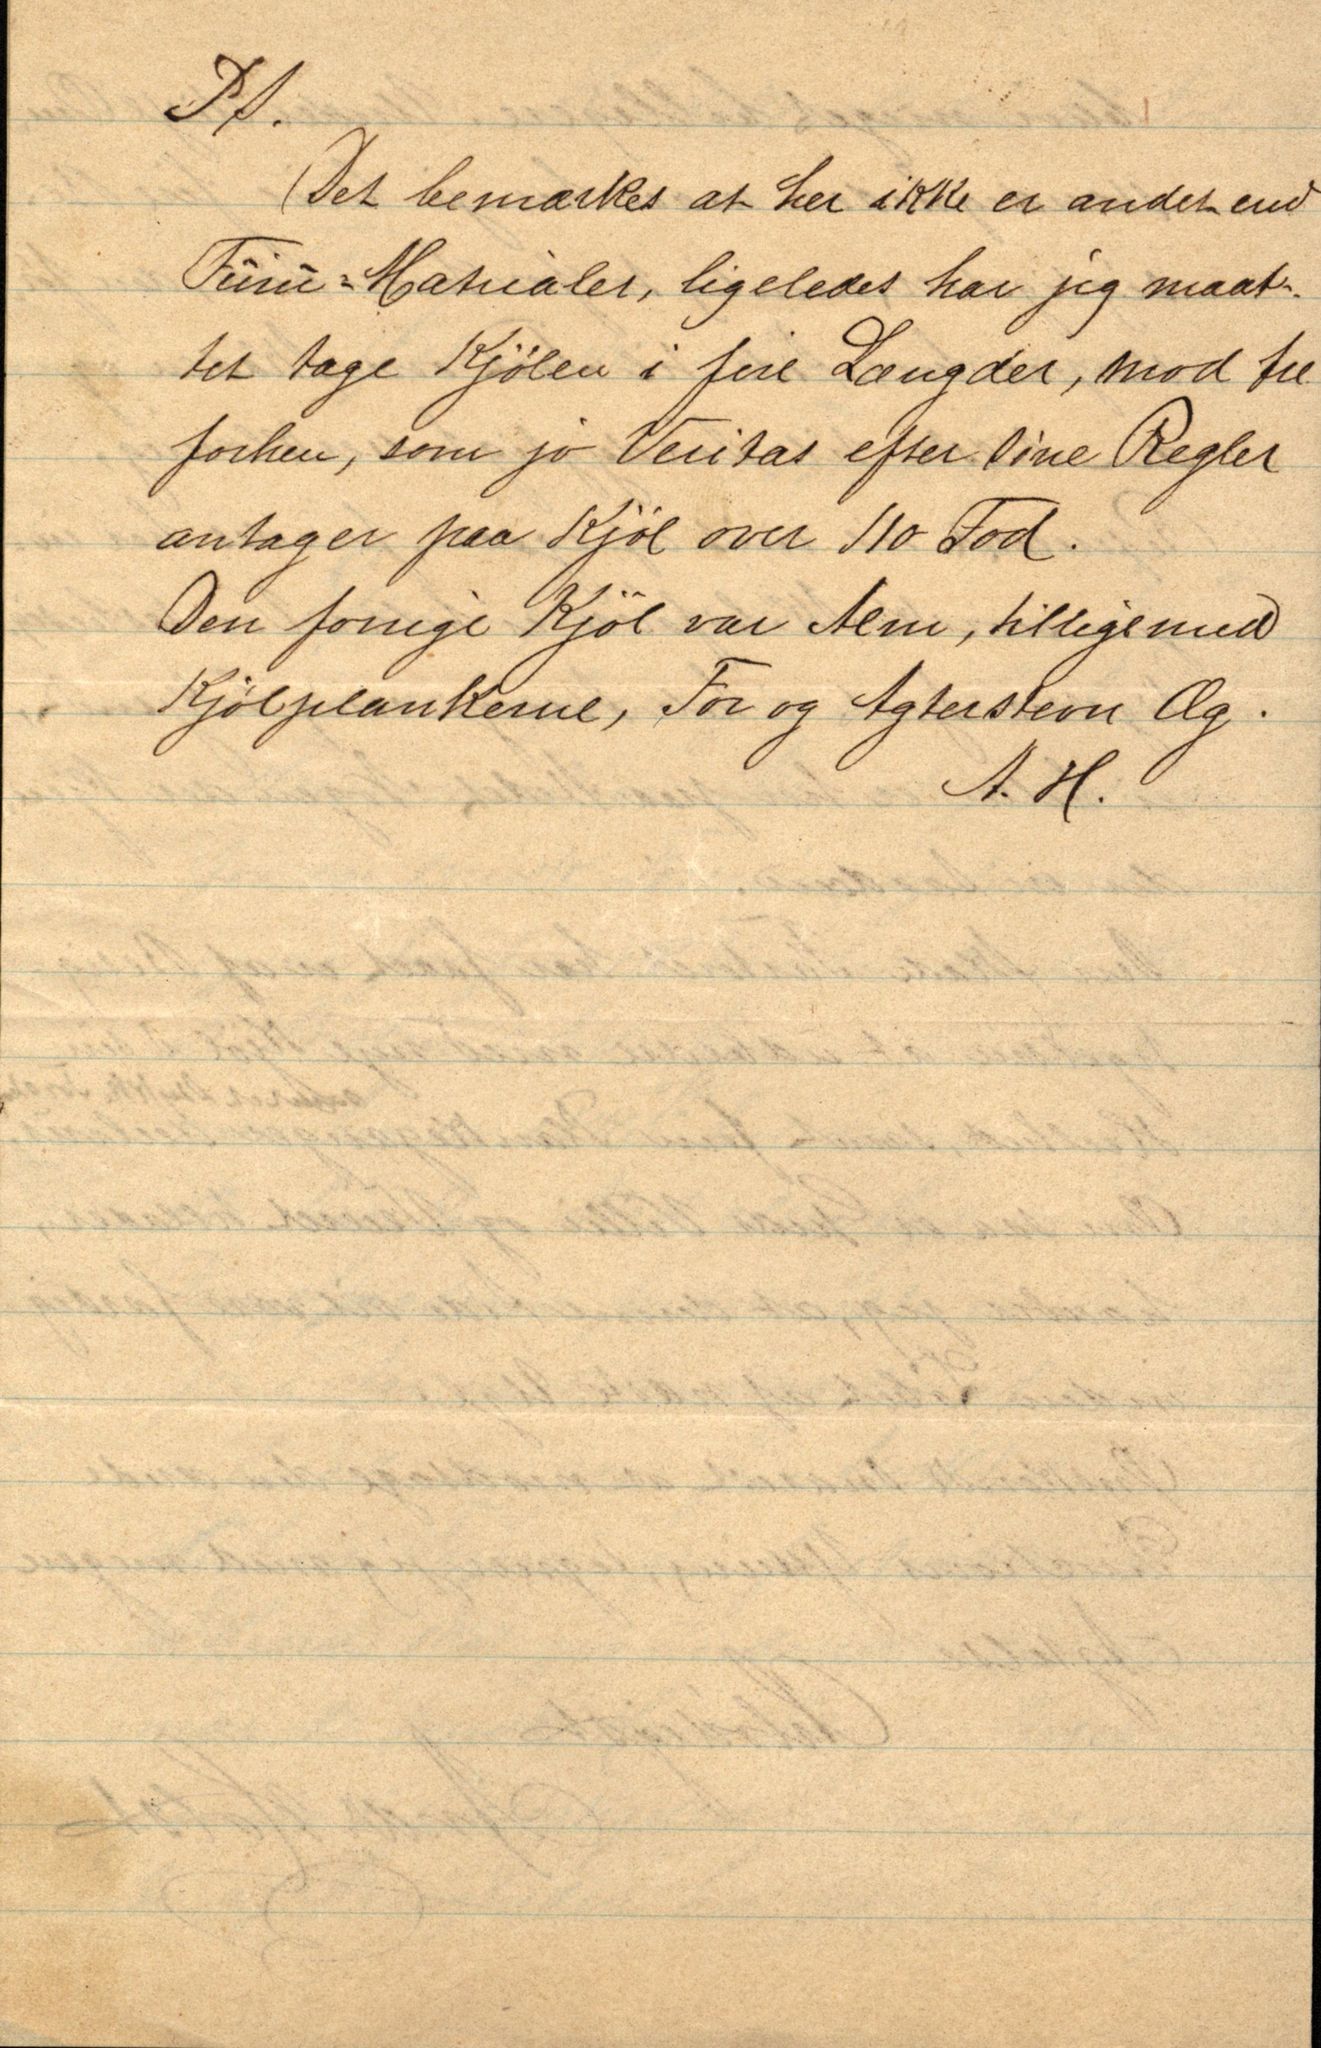 P.S.
Det bemærkes at her ikke er andet end
Furu-Matrialer, ligeledes har jeg maat-
tet tage Kjölen i fire Længder, mod tre
forhen, som jo Veritas efter sine Regler
antager paa Kjöl over 110 Fod.
Den forrige Kjöl var Alm, tilligemed
Kjölplankerne, For og Agterstevn Eg.
A. H.